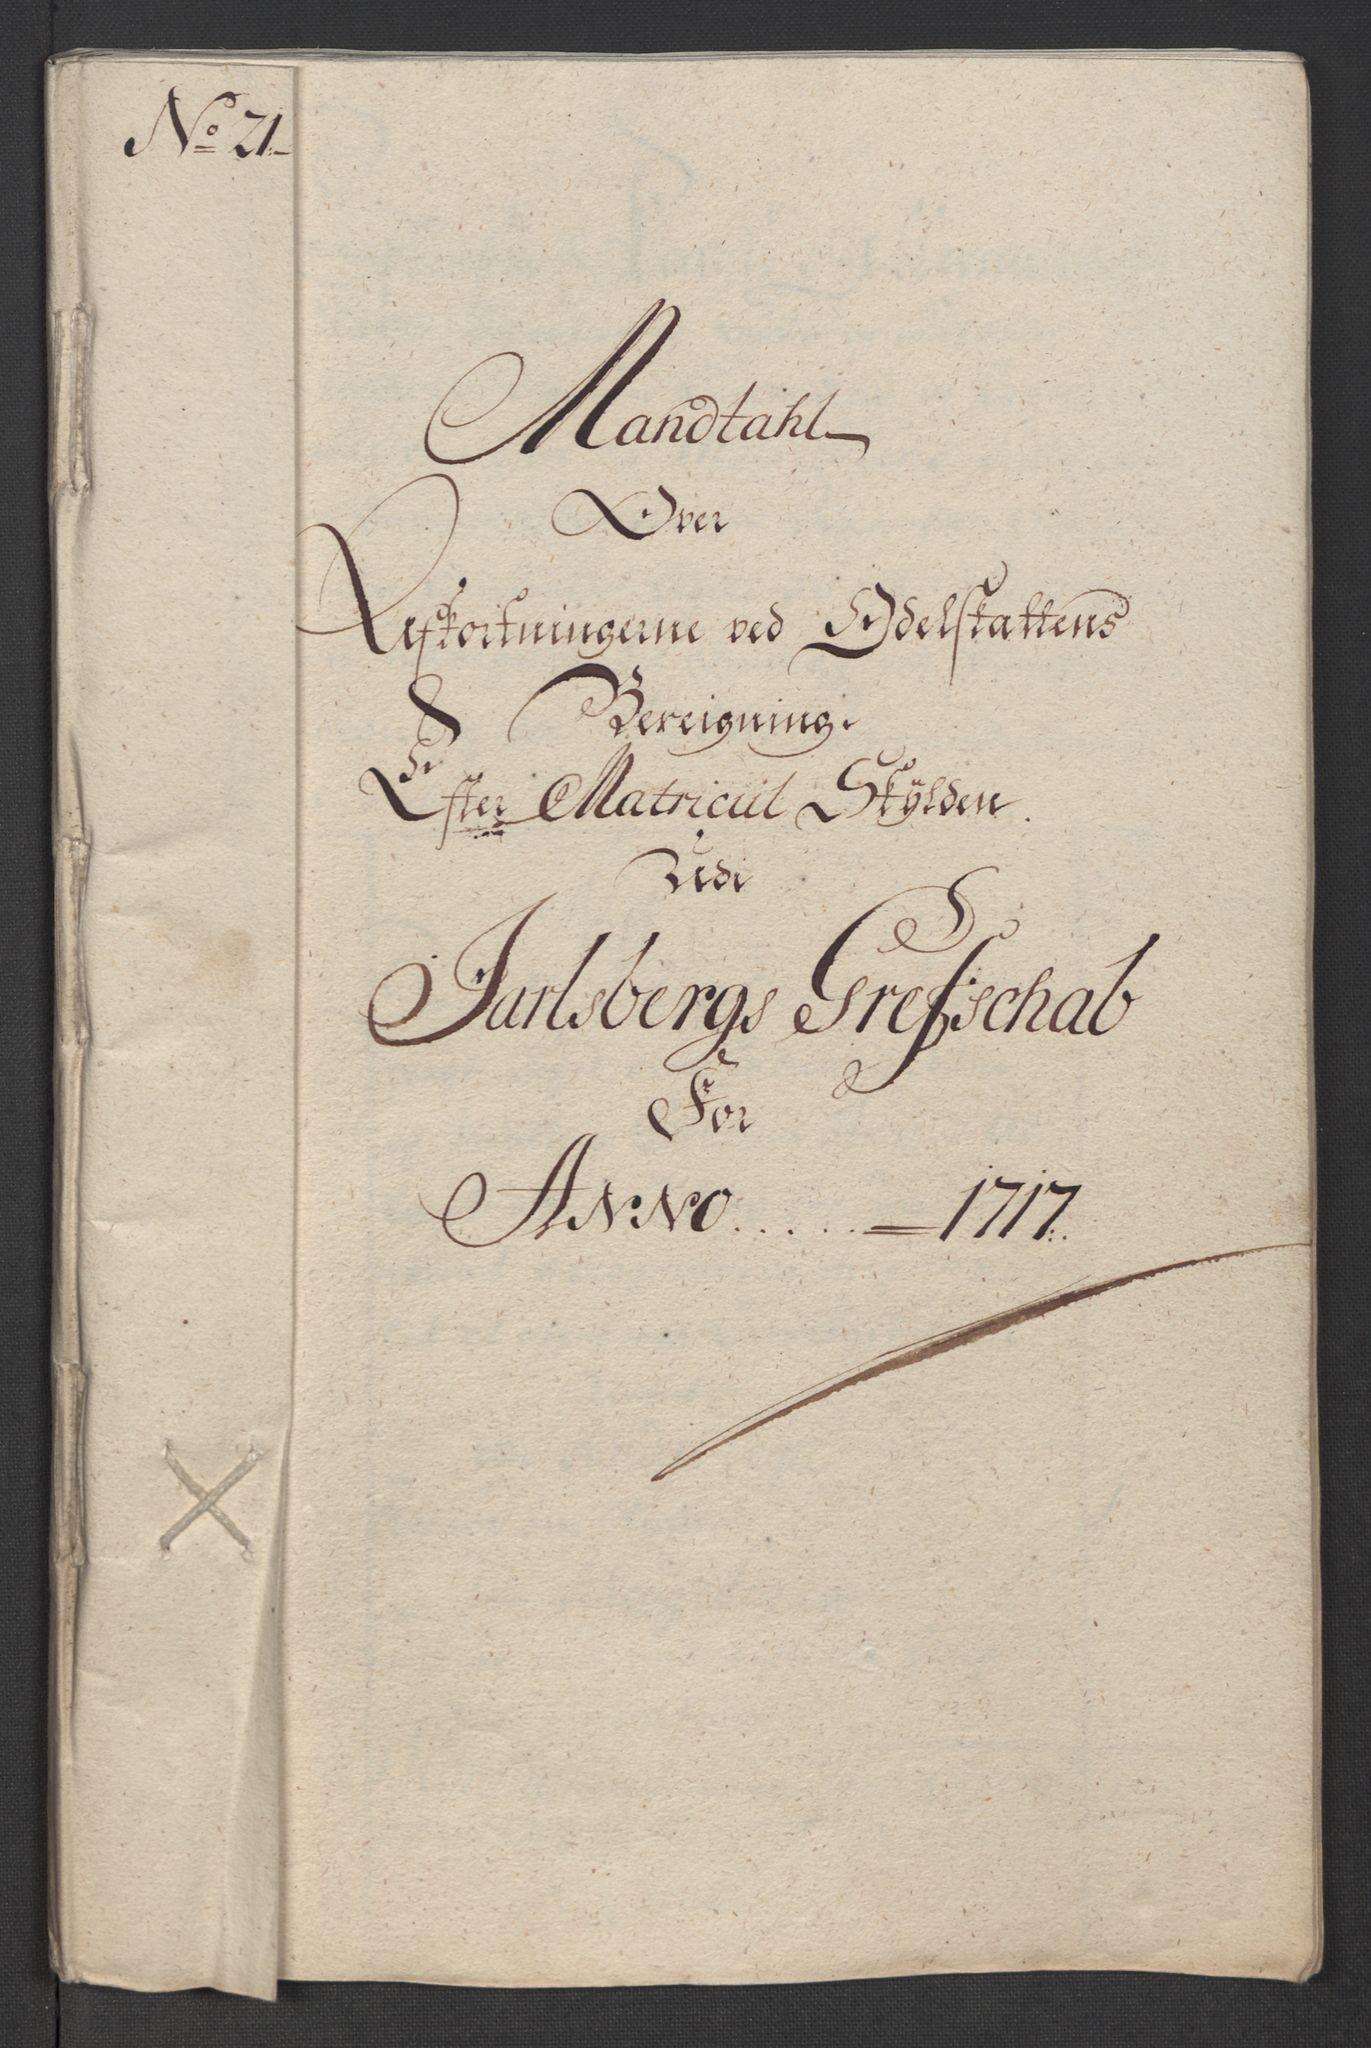 No 21
Mandtahl
Over
Afkortningerne ved Odelskattens
Bereigning.
Efter Matricul Skÿlden.
Udi
Jarlsbergs Grefschab
For
ANNO..... 1717.